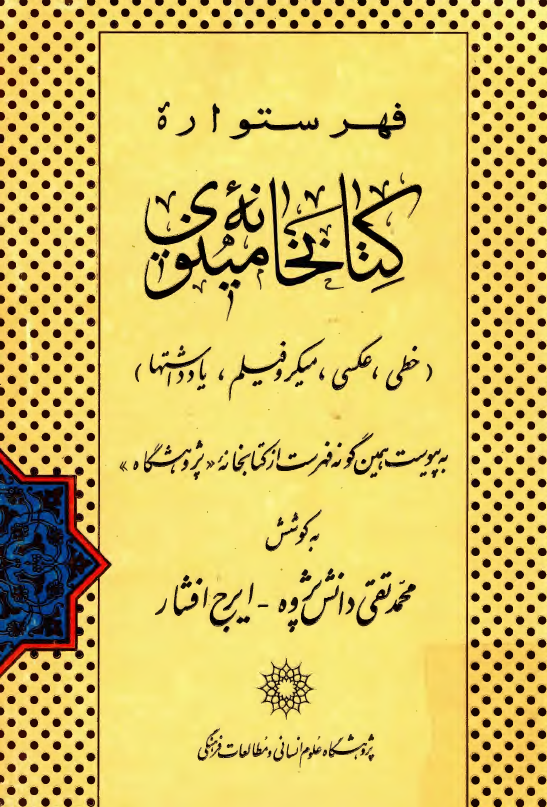 فهرستوارهٔ
کتابخانهٔ مینوی
(خطی، عکسی، میکروفیلم، یادداشتها)
به پیوست همین گونه فهرست از کتابخانهٔ «پژوهشگاه»
به کوشش
محمّد تقی دانش پژوه - ایرج افشار
پژوهشگاه علوم انسانی و مطالعات فرهنگی